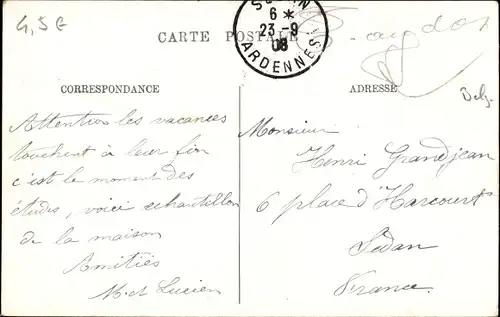 4,5 €
6 *
23-9
08
ARDENNES
CARTE POSTALE
CORRESPONDANCE
ADRESSE
Belg.
Attention les vacances
touchent à leur fin
c'est le moment des
études, voici echantillon
de la maison
Amitiés
M. et Lucien
Monsieur
Henri Grandjean
6 place d'Harcourt
Sedan
France